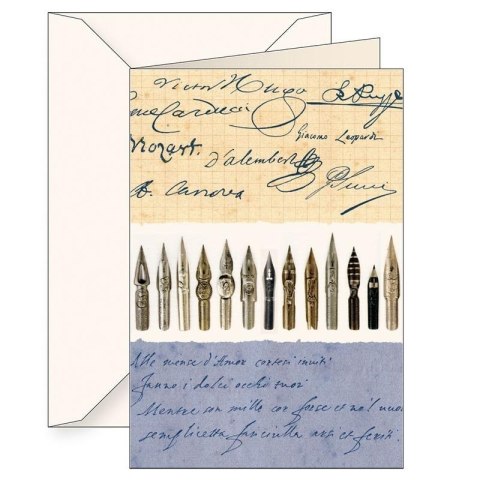 Victor Hugo
Carducci
Giacomo Leopardi
Mozart.
d'alembert
A. Canova
Alle mense d'Amor cortesi inviti
Fanno i dolci occhi tuoi
Mentre con mille cor forse et
semplicetta fanciulla arsi et feriti.